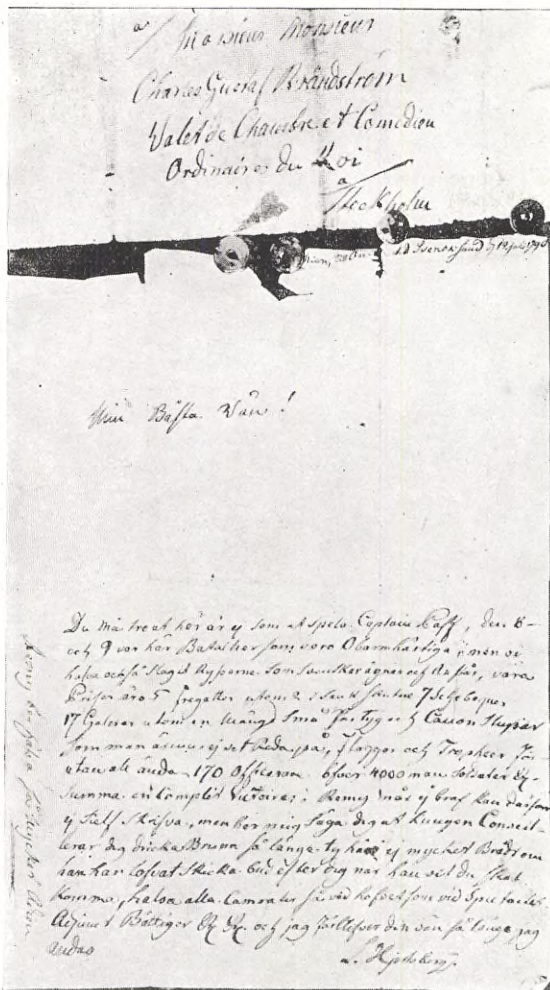 a Monsieur Monsieur
Charles Gustaf Brandström
Valet de Chambre et Comedien
Ordinaires du Roi
a
Stockholm
Svensksund d 12 juli 1790
Min Bästa Wän!
Du må tro at här är ej som at spela Captain Puff, den 8
och 9 var här Batailler som voro Obarmhärtiga, men vi
hafva också slagit Ryssarne som svenskar ägnar och står, våra
Priser äro 5 fregatter utom 2 i Sank skutne 7 Schebequer
17 Galerer utom en mängd Små Fartyg och Canon Slupar
som man ännu ej vet reda på, flaggor och Tropheer För
utan ali ända 170 Officerare öfver 4000 man Soldater En
Summa en Complet Victoire; Remy mår ej braf kan derföre
ej sielf Skrifva, men ber mig säga dig at Kungen Conseil-
lerar dig dricka Brunn så länge, ty han har ej mycket Brådt om
han har lofvat Skicka bud efter dig när han vil du skal
Komma, helsa alla Camrater så vid hofvet som vid Spectacle
Adjunct Böttiger &c &c. och jag förblifver din vän så länge jag
andas
L. Hjortsberg
Remy